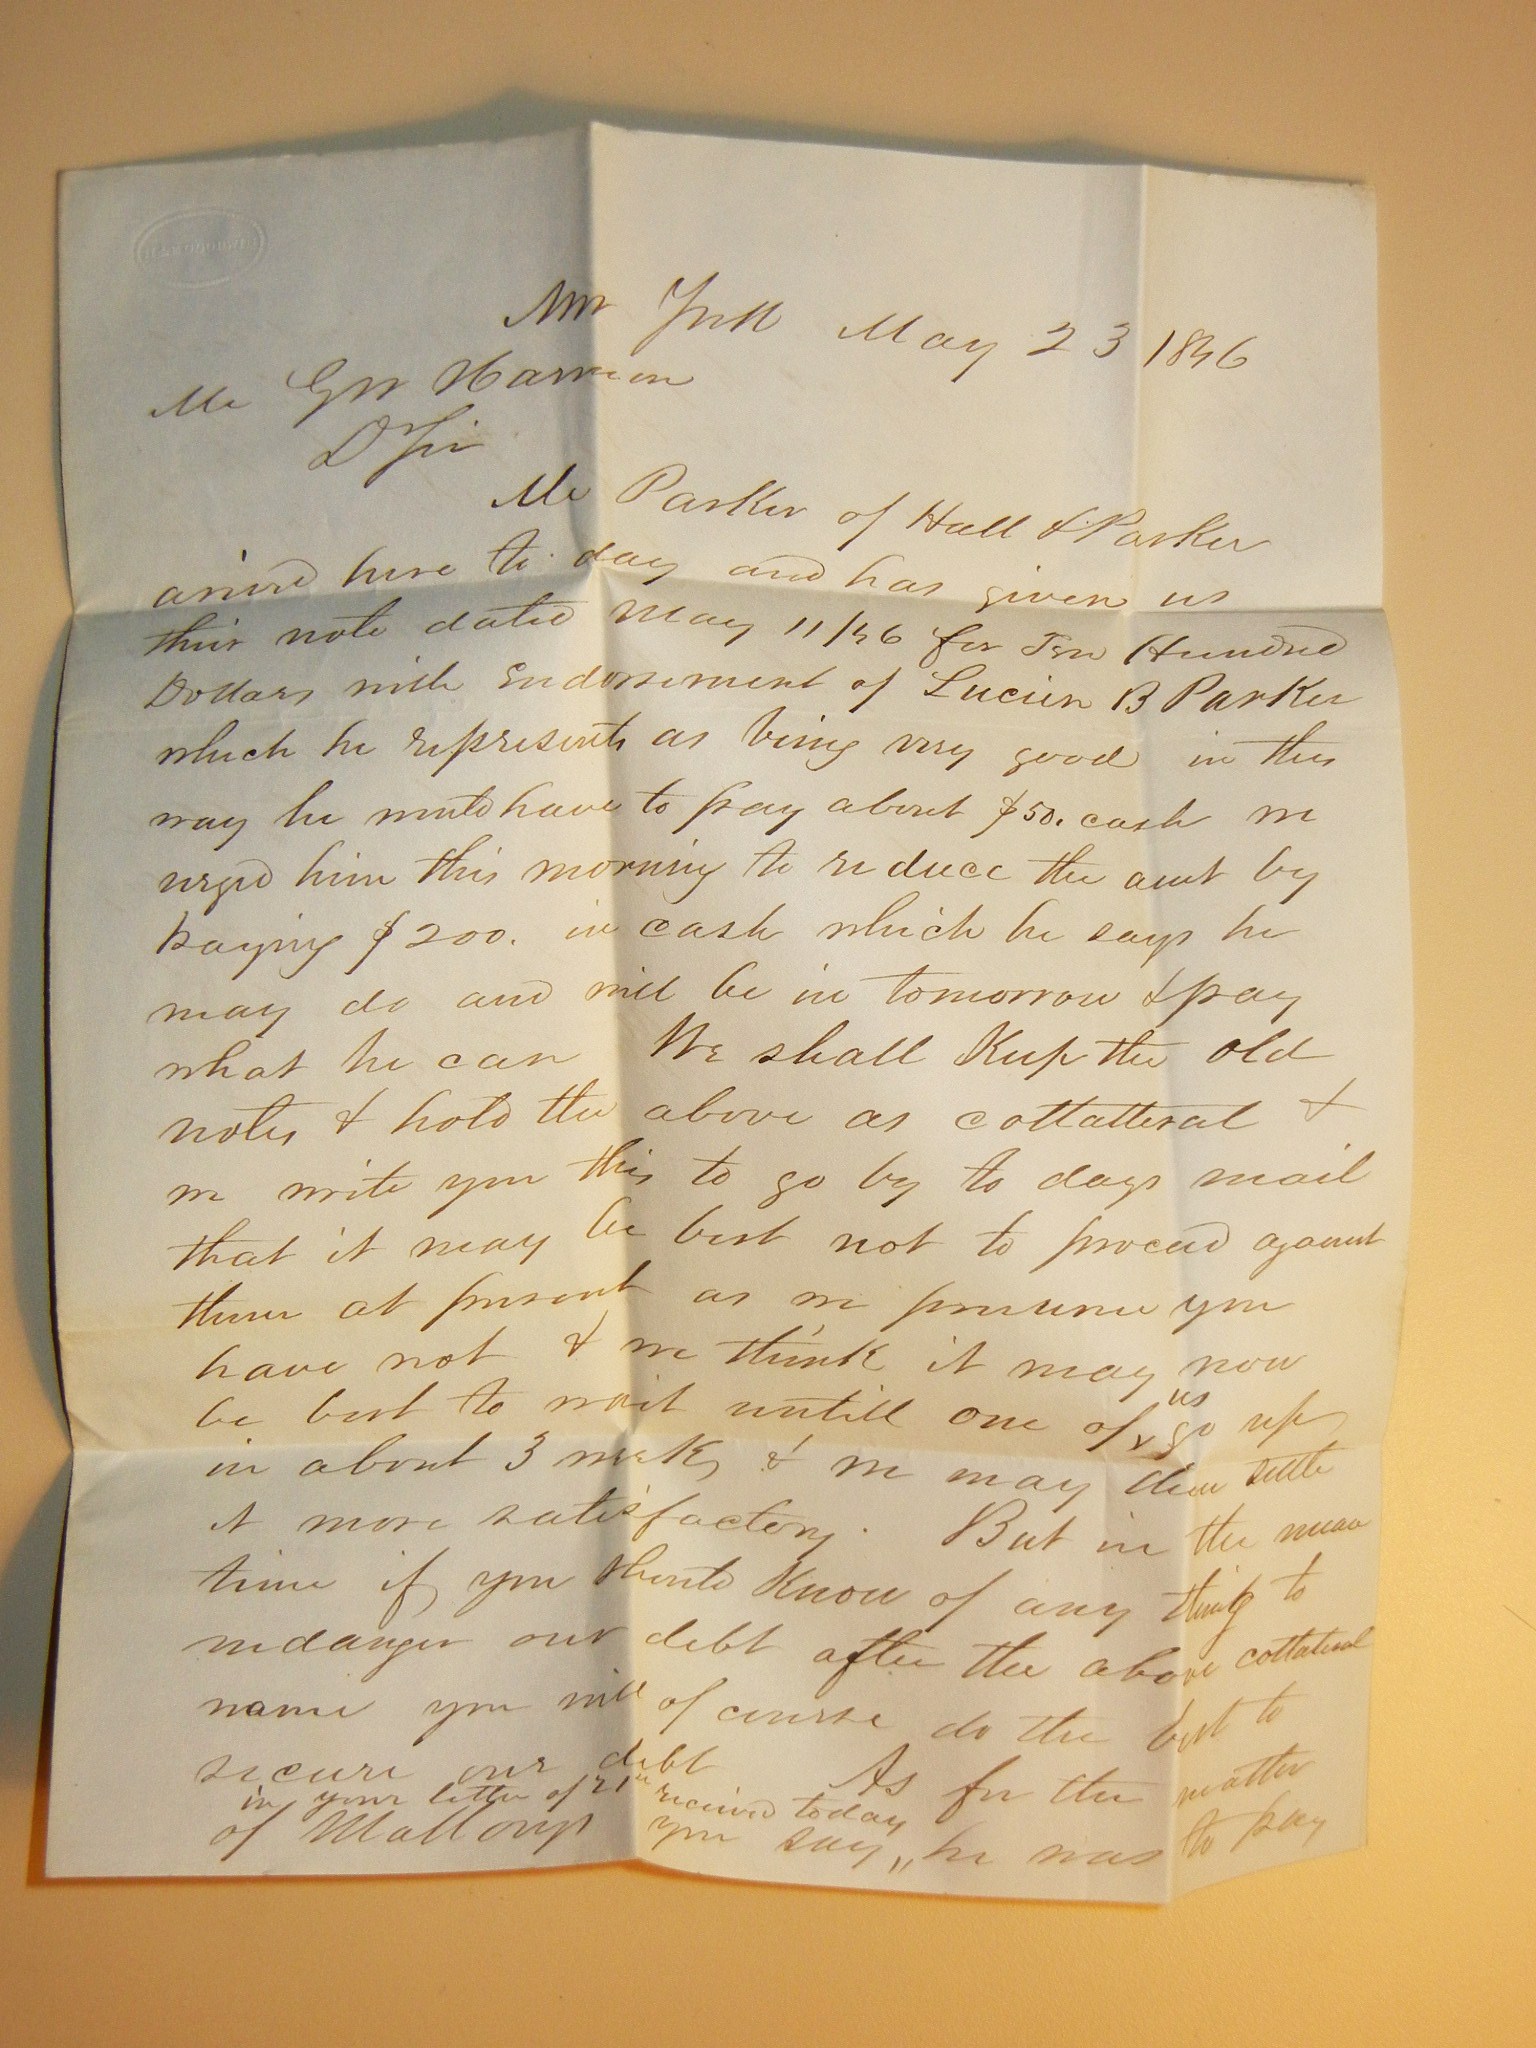 New York May 23 1846
Mr GW Harrison
Dr Sir
Mr Parker of Hall & Parker
arived here to day and has given us
their note dated May 11/46 for Ten Hundred
Dollars with Endorsement of Lucien B Parker
which he represents as being very good in this
way he would have to pay about $50. cash we
urged him this morning to reduce the amt by
paying $200. in cash which he says he
may do and will be in tomorrow & pay
what he can We shall Keep the old
notes & hold the above as cottatteral &
we write you this to go by to days mail
that it may be best not to proceed against
them at present as we presume you
have not & we think it may now
be best to wait untill one of us go up
in about 3 weeks & we may then settle
it more satisfactory. But in the mean
time if you should Know of any thing to
endanger our debt after the above cottateral
name you will of course do the best to
secure our debt As for the matter
in your letter of 21st received today
of Mallorys you say „ he was to pay